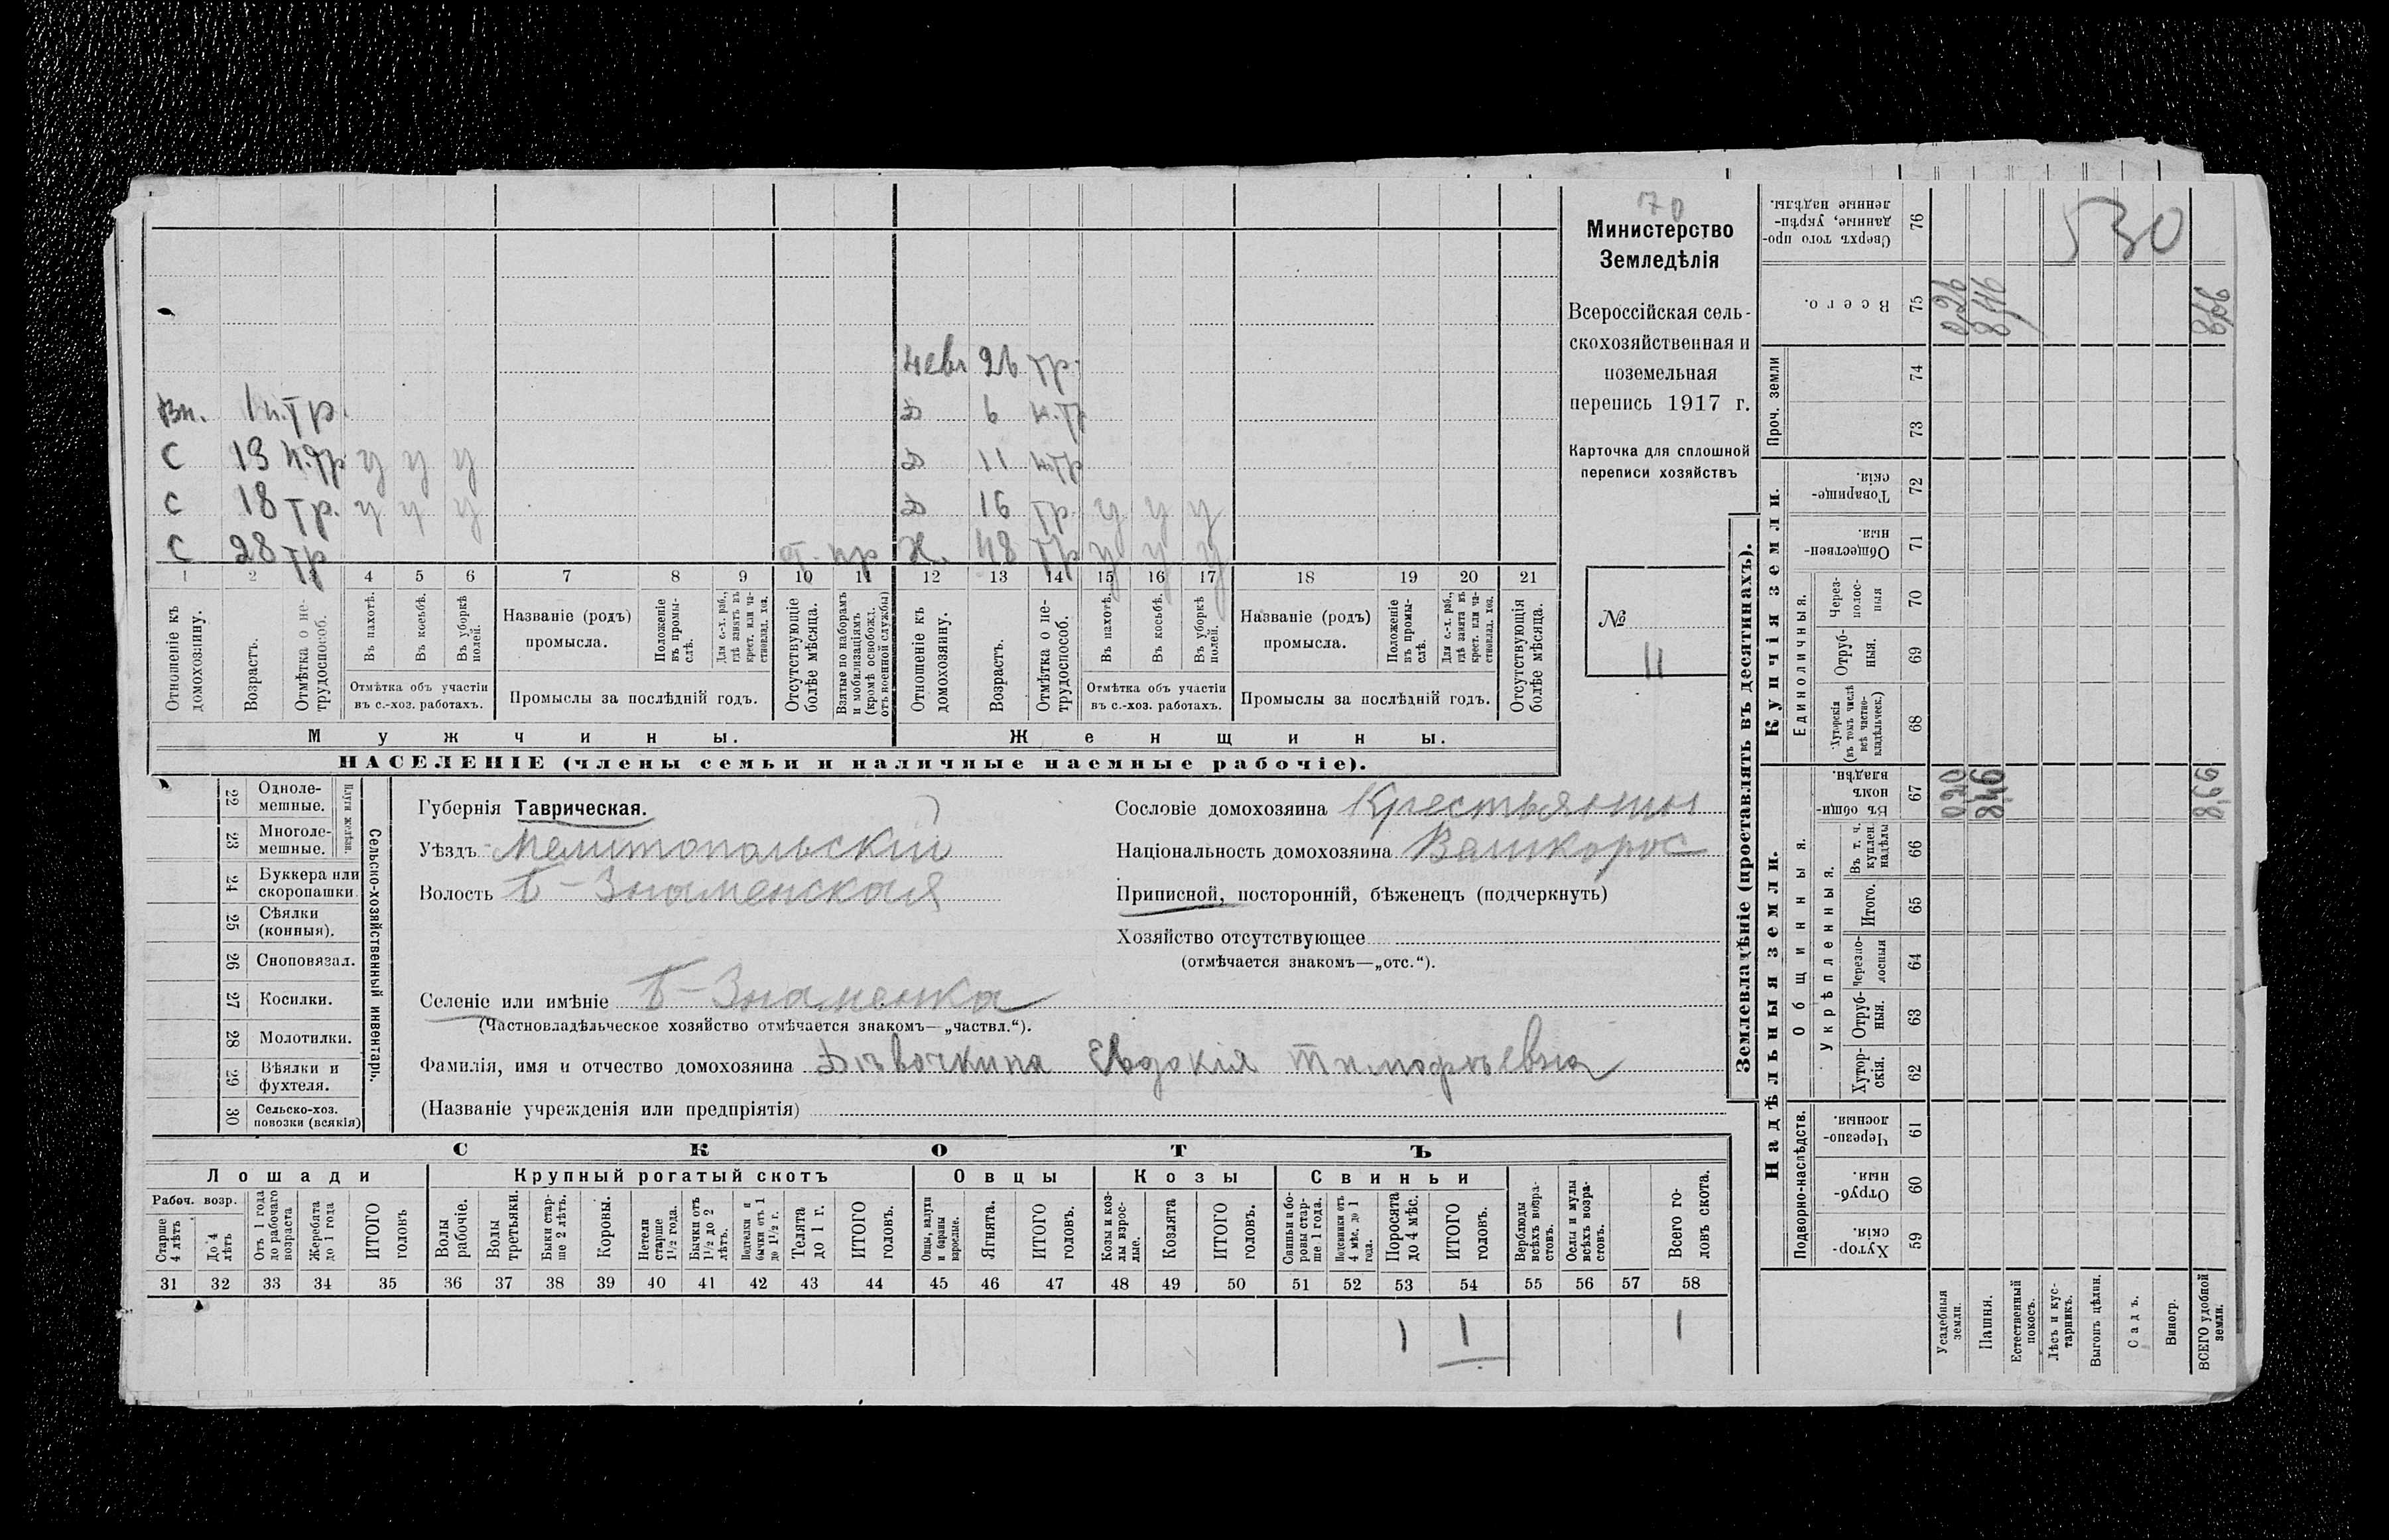 70
Министерство
Земледѣлія
Всероссійская сель-
скохозяйственная и
поземельная
перепись 1917 г.
Карточка для сплошной
переписи хозяйствъ
№
11
530
26 тр.
Вн. 1 н.тр.
Д 6 н.тр
С 13 н.тр у у у
Д 11 н.тр
С 18 тр. у у у
Д 16 тр. у у у
С 28 тр
Ж. 48 тр у у у
1 2 3 4 5 6 7 8 9 10 11 12 13 14 15 16 17 18 19 20 21
Отношеніе къ домохозяину.
Возрастъ.
Отмѣтка о не-трудоспособ.
Въ пахотѣ.
Въ косьбѣ.
Въ уборкѣ полей.
Отмѣтка объ участіи
въ с.-хоз. работахъ.
Названіе (родъ)
промысла.
Положеніе въ промы-слѣ.
Для с.-х. раб., гдѣ занятъ въ крест. или ча-стновлад. хоз.
Промыслы за послѣдній годъ.
Отсутствующіе болѣе мѣсяца.
Взятые по наборамъ и мобилизаціямъ (кромѣ освобожд. отъ военной службы)
Отношеніе къ домохозяину.
Возрастъ.
Отмѣтка о не-трудоспособ.
Въ пахотѣ.
Въ косьбѣ.
Въ уборкѣ полей.
Отмѣтка объ участіи
въ с.-хоз. работахъ.
Названіе (родъ)
промысла.
Положеніе въ промы-слѣ.
Для с.-х. раб., гдѣ занята въ крест. или ча-стновлад. хоз.
Промыслы за послѣдній годъ.
Отсутствующія болѣе мѣсяца.
Мужчины. Женщины.
НАСЕЛЕНІЕ (члены семьи и наличные наемные рабочіе).
22 Одноле-мешные.
23 Многоле-мешные.
Плуги желѣзн.
24 Буккера или скоропашки.
25 Сѣялки (конныя).
26 Сноповязал.
27 Косилки.
28 Молотилки.
29 Вѣялки и фухтеля.
30 Сельско-хоз. повозки (всякія)
Сельско-хозяйственный инвентарь.
Губернія Таврическая.
Уѣздъ Мелитопольскій
Волость Б-Знаменская
Селеніе или имѣніе Б-Знаменка
(Частновладѣльческое хозяйство отмѣчается знакомъ—„частвл.“).
Фамилія, имя и отчество домохозяина Дѣвочкина Евдокія Тимофѣевна
(Названіе учрежденія или предпріятія)
Сословіе домохозяина Крестьянин
Національность домохозяина
Приписной, посторонній, бѣженецъ (подчеркнуть)
Хозяйство отсутствующее
(отмѣчается знакомъ—„отс.“).
СКОТЪ
Лошади Крупный рогатый скотъ Овцы Козы Свиньи
Рабоч. возр.
Старше 4 лѣтъ
До 4 лѣтъ
Отъ 1 года до рабочаго возраста
Жеребята до 1 года
ИТОГО головъ
Волы рабочіе.
Волы третьяки.
Быки стар-ше 2 лѣтъ.
Коровы.
Нетели старше 1½ года.
Бычки отъ 1½ до 2 лѣтъ.
Подтелки и бычки отъ 1 до 1½ г.
Телята до 1 г.
ИТОГО головъ.
Овцы, валухи и бараны взрослые.
Ягнята.
ИТОГО головъ.
Козы и коз-лы взрос-лые.
Козлята
ИТОГО головъ.
Свиньи и бо-ровы стар-ше 1 года.
Подсвинки отъ 4 мѣс. до 1 года.
Поросята до 4 мѣс.
ИТОГО головъ.
Верблюды всѣхъ возра-стовъ.
Ослы и мулы всѣхъ возра-стовъ.
Всего го-ловъ скота.
31 32 33 34 35 36 37 38 39 40 41 42 43 44 45 46 47 48 49 50 51 52 53 54 55 56 57 58
1 1 1
Землевладѣніе (проставлять въ десятинахъ).
Надѣльныя земли. Купчія земли. Проч. земли
Подворно-наслѣдств. Общинныя. Единоличныя.
Укрѣпленныя.
59 Хутор-скія.
60 Отруб-ныя.
61 Черезпо-лосныя.
62 Хутор-скія.
63 Отруб-ныя.
64 Черезпо-лосныя
65 Итого.
66 Въ т. ч. куплен. надѣлы
67 Въ общи-номъ владѣн.
68 Хуторскія (въ томъ числѣ всѣ частно-владѣльческ.)
69 Отруб-ныя.
70 Через-полос-ныя
71 Обществен-ныя.
72 Товарище-скія.
73
74
75 Всего.
76 Сверхъ того про-данные, укрѣп-ленные надѣлы.
Усадебныя земли. 0,20
Пашня. 8,46 8,46
Естественный покосъ.
Лѣсъ и кус-тарникъ.
Выгонъ цѣлин.
Садъ.
Виногр.
ВСЕГО удобной земли. 8,66 8,66